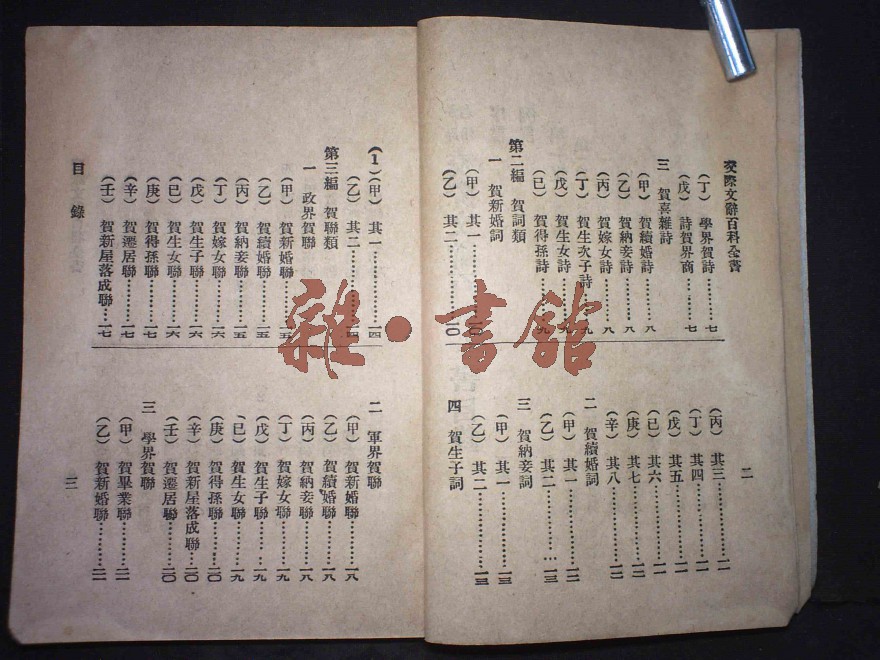 交際文辭百科全書
(丁) 學界賀詩……七
(戊) 詩賀界商……七
三 賀喜雜詩
(甲) 賀續婚詩……八
(乙) 賀納妾詩……八
(丙) 賀嫁女詩……八
(丁) 賀生次子詩……九
(戊) 賀生女詩……九
(已) 賀得孫詩……九
第二編 賀詞類
一 賀新婚詞
(甲) 其一……一〇
(乙) 其二……一〇
二
(丙) 其三……一一
(丁) 其四……一一
(戊) 其五……一一
(已) 其六……一一
(庚) 其七……一二
(辛) 其八……一二
二 賀續婚詞
(甲) 其一……一二
(乙) 其二……一三
三 賀納妾詞
(甲) 其一……一三
(乙) 其二……一三
四 賀生子詞
(1)(甲) 其一……一四
(乙) 其二……一四
第三編 賀聯類
一 政界賀聯
(甲) 賀新婚聯……一五
(乙) 賀續婚聯……一五
(丙) 賀納妾聯……一五
(丁) 賀嫁女聯……一六
(戊) 賀生子聯……一六
(已) 賀生女聯……一六
(庚) 賀得孫聯……一七
(辛) 賀遷居聯……一七
(壬) 賀新屋落成聯…一七
目錄
二 軍界賀聯
(甲) 賀新婚聯……一八
(乙) 賀續婚聯……一八
(丙) 賀納妾聯……一八
(丁) 賀嫁女聯……一九
(戊) 賀生子聯……一九
(已) 賀生女聯……一九
(庚) 賀得孫聯……二〇
(辛) 賀新屋落成聯…二〇
(壬) 賀遷居聯……二〇
三 學界賀聯
(甲) 賀畢業聯……二一
(乙) 賀新婚聯……二一
三
雜·書館